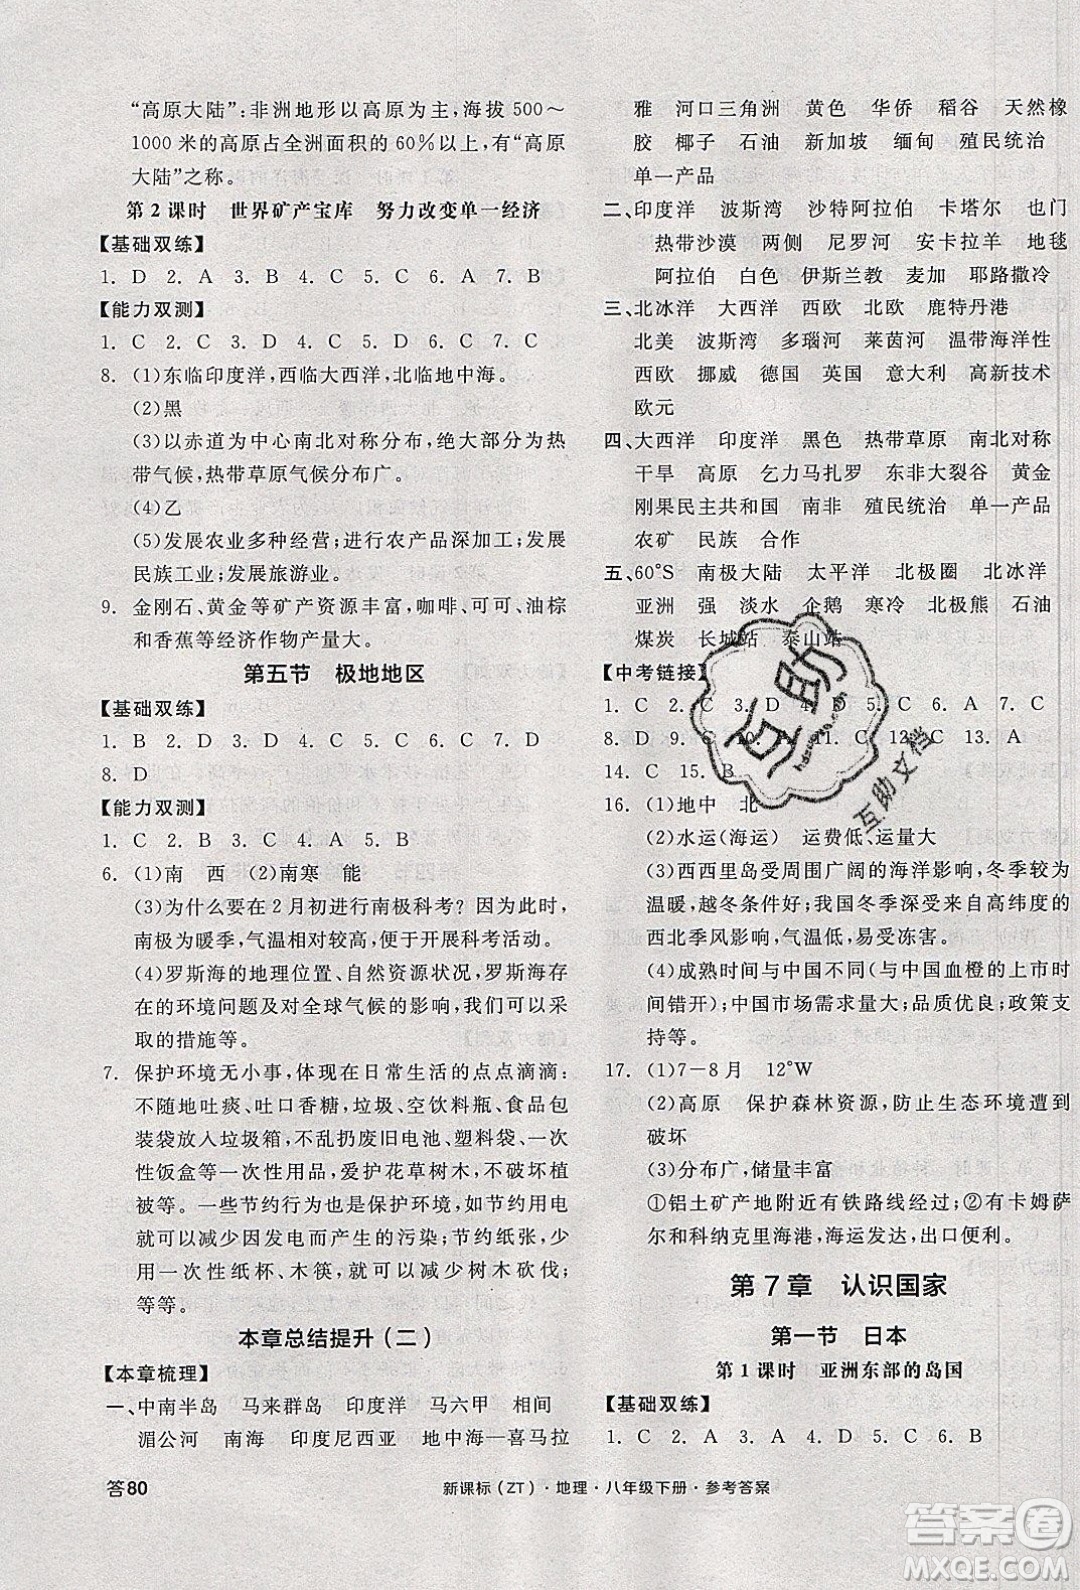 “高原大陆”:非洲地形以高原为主,海拔 500～
1000 米的高原占全洲面积的 60%以上,有“高原
大陆”之称。
第 2 课时 世界矿产宝库 努力改变单一经济
【基础双练】
1. D 2. A 3. B 4. C 5. C 6. A 7. B
【能力双测】
1. C 2. C 3. B 4. C 5. B 6. C 7. C
8. (1)东临印度洋,西临大西洋,北临地中海。
(2)黑
(3)以赤道为中心南北对称分布,绝大部分为热
带气候,热带草原气候分布广。
(4)乙
(5)发展农业多种经营;进行农产品深加工;发展
民族工业;发展旅游业。
9. 金刚石、黄金等矿产资源丰富,咖啡、可可、油棕
和香蕉等经济作物产量大。
第五节 极地地区
【基础双练】
1. B 2. D 3. D 4. B 5. C 6. C 7. D
8. D
【能力双测】
1. C 2. B 3. C 4. A 5. B
6. (1)南 西 (2)南寒 能
(3)为什么要在 2 月初进行南极科考? 因为此时,
南极为暖季,气温相对较高,便于开展科考活动。
(4)罗斯海的地理位置、自然资源状况,罗斯海存
在的环境问题及对全球气候的影响,我们可以采
取的措施等。
7. 保护环境无小事,体现在日常生活的点点滴滴:
不随地吐痰、吐口香糖,垃圾、空饮料瓶、食品包
装袋放入垃圾箱,不乱扔废旧电池、塑料袋、一次
性饭盒等一次性餐具,爱护花草树木,不破坏植
被等。一些节约行为也是保护环境,如节约用电
可以减少因发电而产生的污染;节约纸张,少
用一次性纸杯、木筷,就可以减少树木砍伐;
等等。
本章总结提升(二)
【本章梳理】
一、中南半岛 马来群岛 印度洋 马六甲 相间
湄公河 南海 印度尼西亚 地中海—喜马拉
雅 河口三角洲 黄色 华侨 稻谷 天然橡
胶 椰子 石油 新加坡 缅甸 殖民统治
单一产品
二、印度洋 波斯湾 沙特阿拉伯 卡塔尔 也门
热带沙漠 两侧 尼罗河 安卡拉羊 地毯
阿拉伯 白色 伊斯兰教 麦加 耶路撒冷
三、北冰洋 大西洋 西欧 北欧 鹿特丹港
北美 波斯湾 多瑙河 莱茵河 温带海洋性
西欧 挪威 德国 英国 意大利 高新技术
欧元
四、大西洋 印度洋 黑色 热带草原 南北对称
干旱 高原 乞力马扎罗 东非大裂谷 黄金
刚果民主共和国 南非 殖民统治 单一产品
农矿 民族 合作
五、60°S 南极大陆 太平洋 北极圈 北冰洋
亚洲 强 淡水 企鹅 寒冷 北极熊 石油
煤炭 长城站 泰山站
【中考链接】
1. C 2. C 3. D 4. D 5. C 6. A 7. C
8. D 9. C 10. A 11. C 12. C 13. A
14. C 15. B
16. (1)地中 北
(2)水运(海运) 运费低、运量大
(3)西西里岛受周围广阔的海洋影响,冬季较为
温暖,越冬条件好;我国冬季深受来自高纬度的
西北季风影响,气温低,易受冻害。
(4)成熟时间与中国不同(与中国血橙的上市时
间错开);中国市场需求量大;品质优良;政策支
持等。
17. (1)7－8 月 12°W
(2)高原 保护森林资源,防止生态环境遭到
破坏
(3)分布广,储量丰富
①铝土矿产地附近有铁路线经过;②有卡姆萨
尔和科纳克里等港口,海运便利,出口便利。
第 7 章 认识国家
第一节 日本
第 1 课时 亚洲东部的岛国
【基础双练】
1. C 2. A 3. A 4. D 5. C 6. A 7. C
答80
新课标(ZT)·地理·八年级下册·参考答案
互助
互助文档
答案圈
MXQE.COM